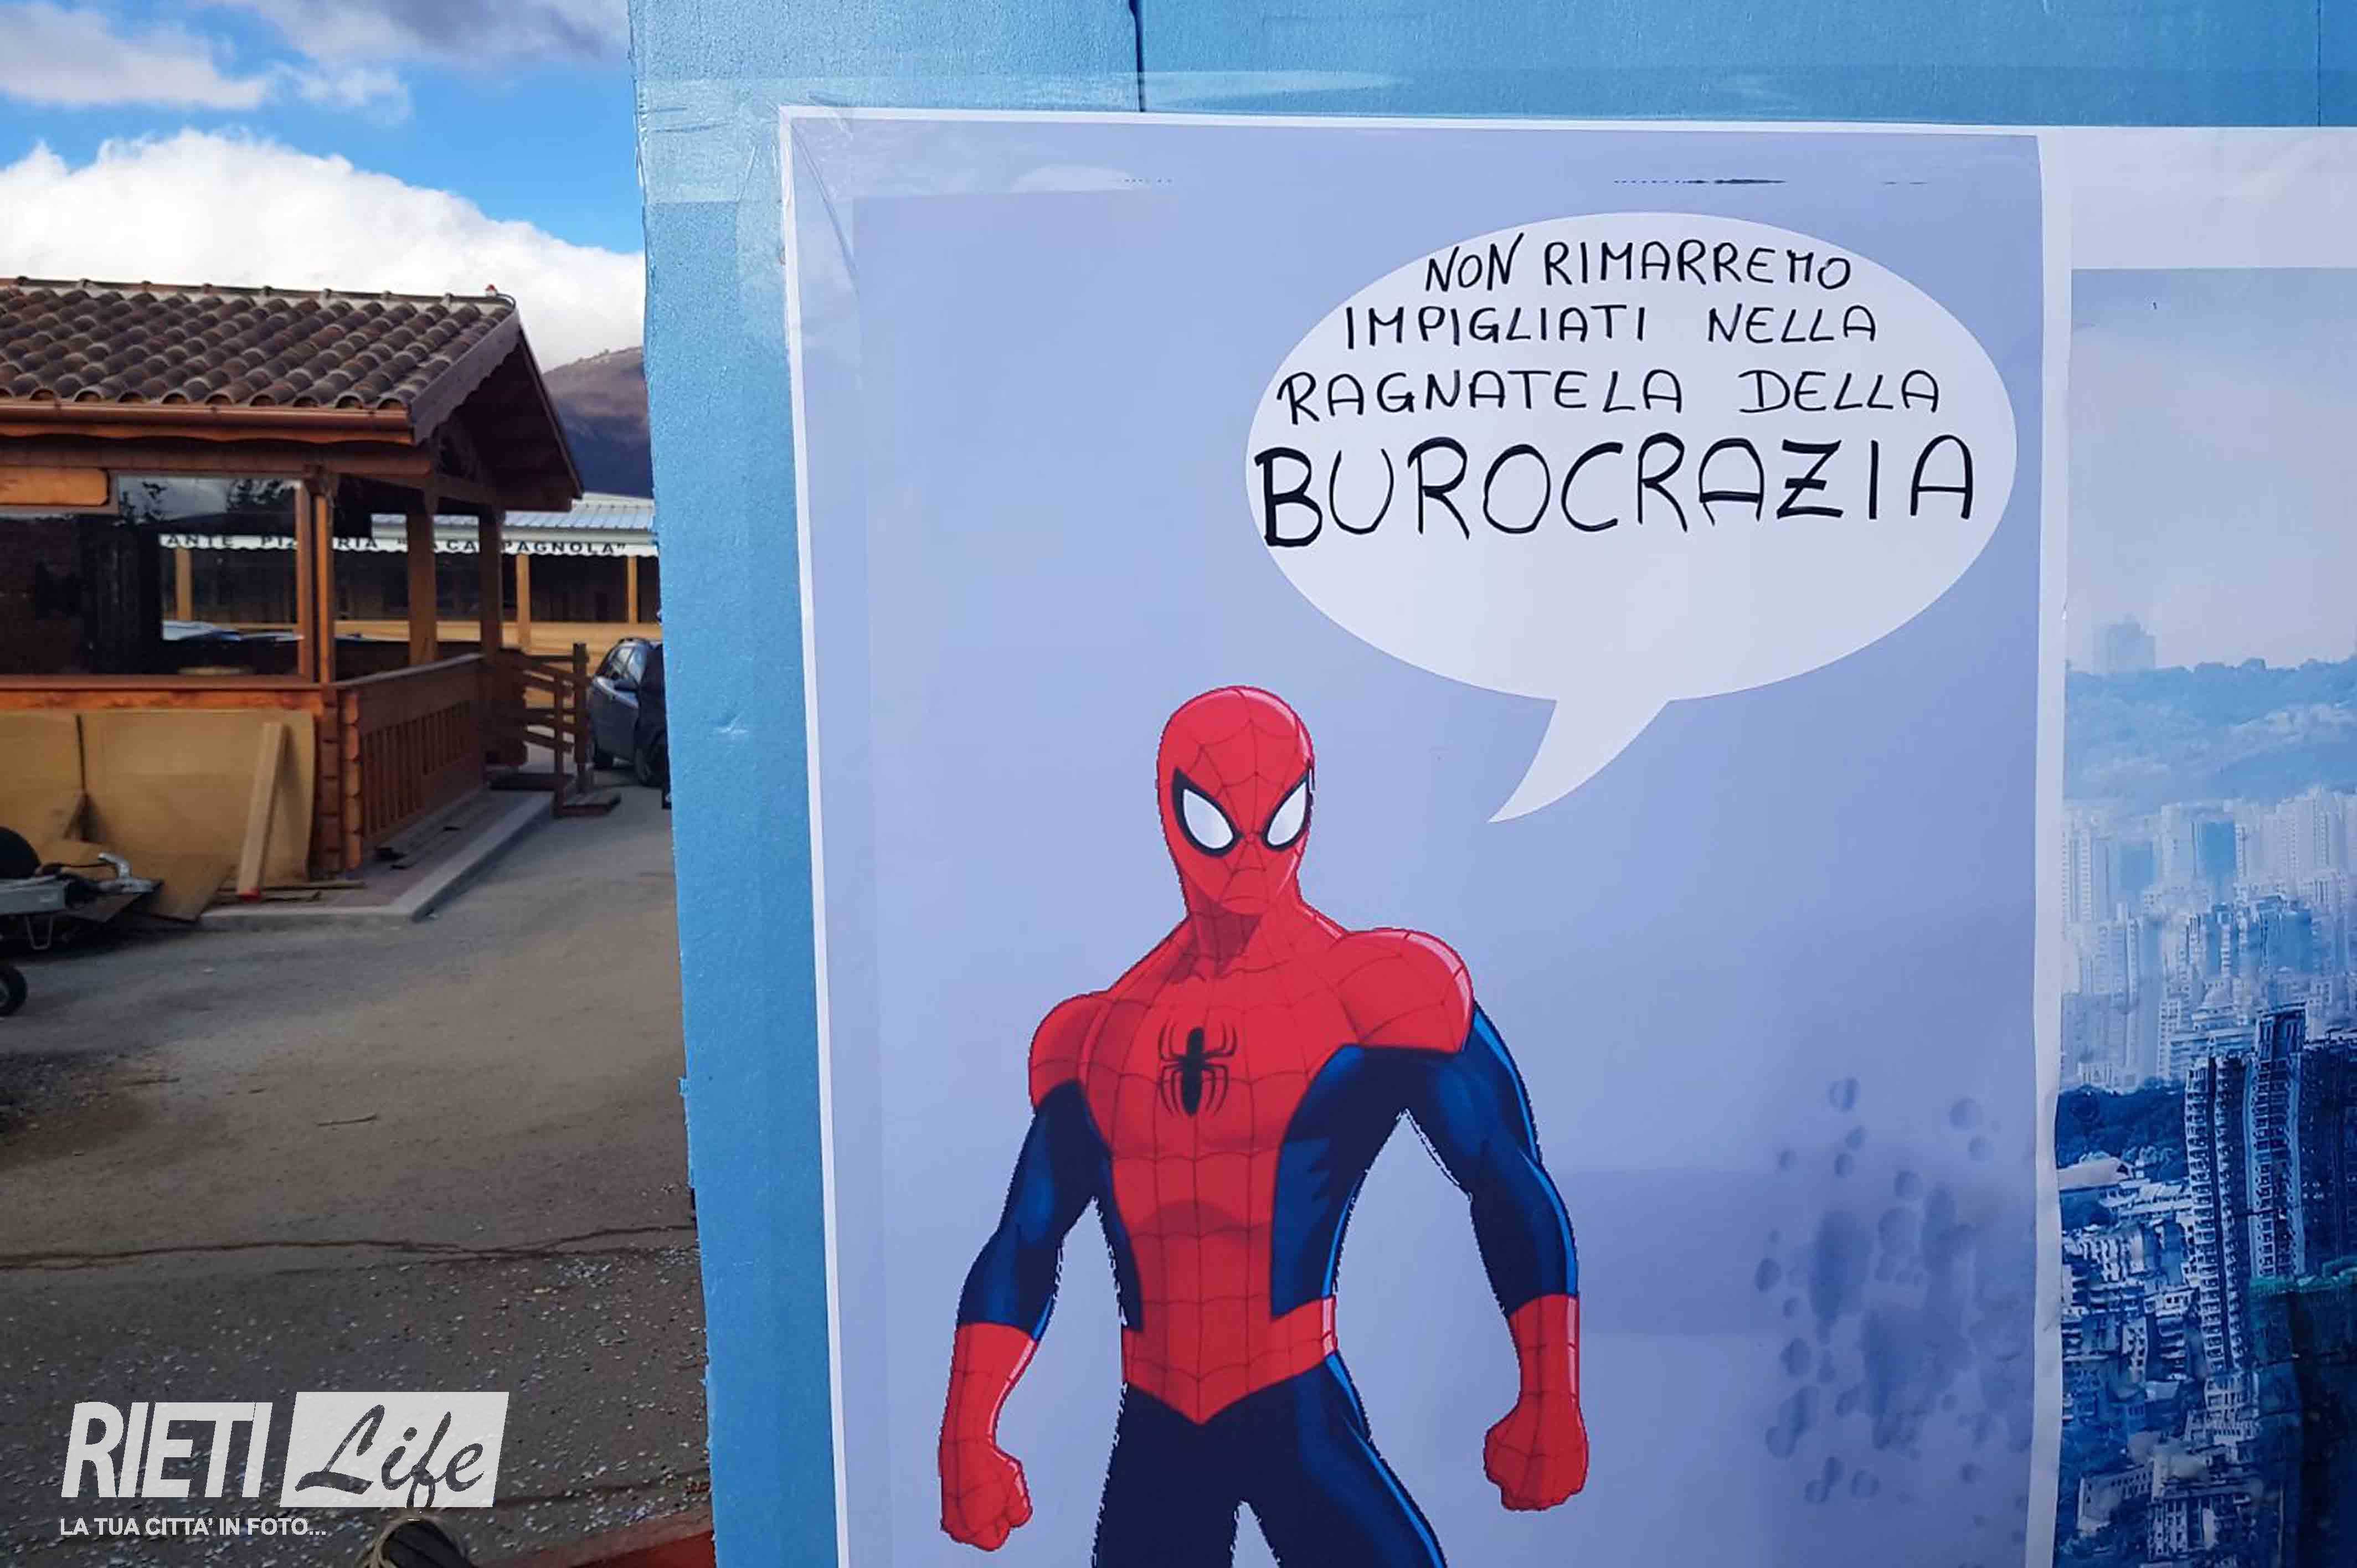 NON RIMARREMO
IMPIGLIATI NELLA
RAGNATELA DELLA
BUROCRAZIA
ANTE PIZ RIA " A CA PAGNOLA"
RIETI Life
LA TUA CITTA' IN FOTO...